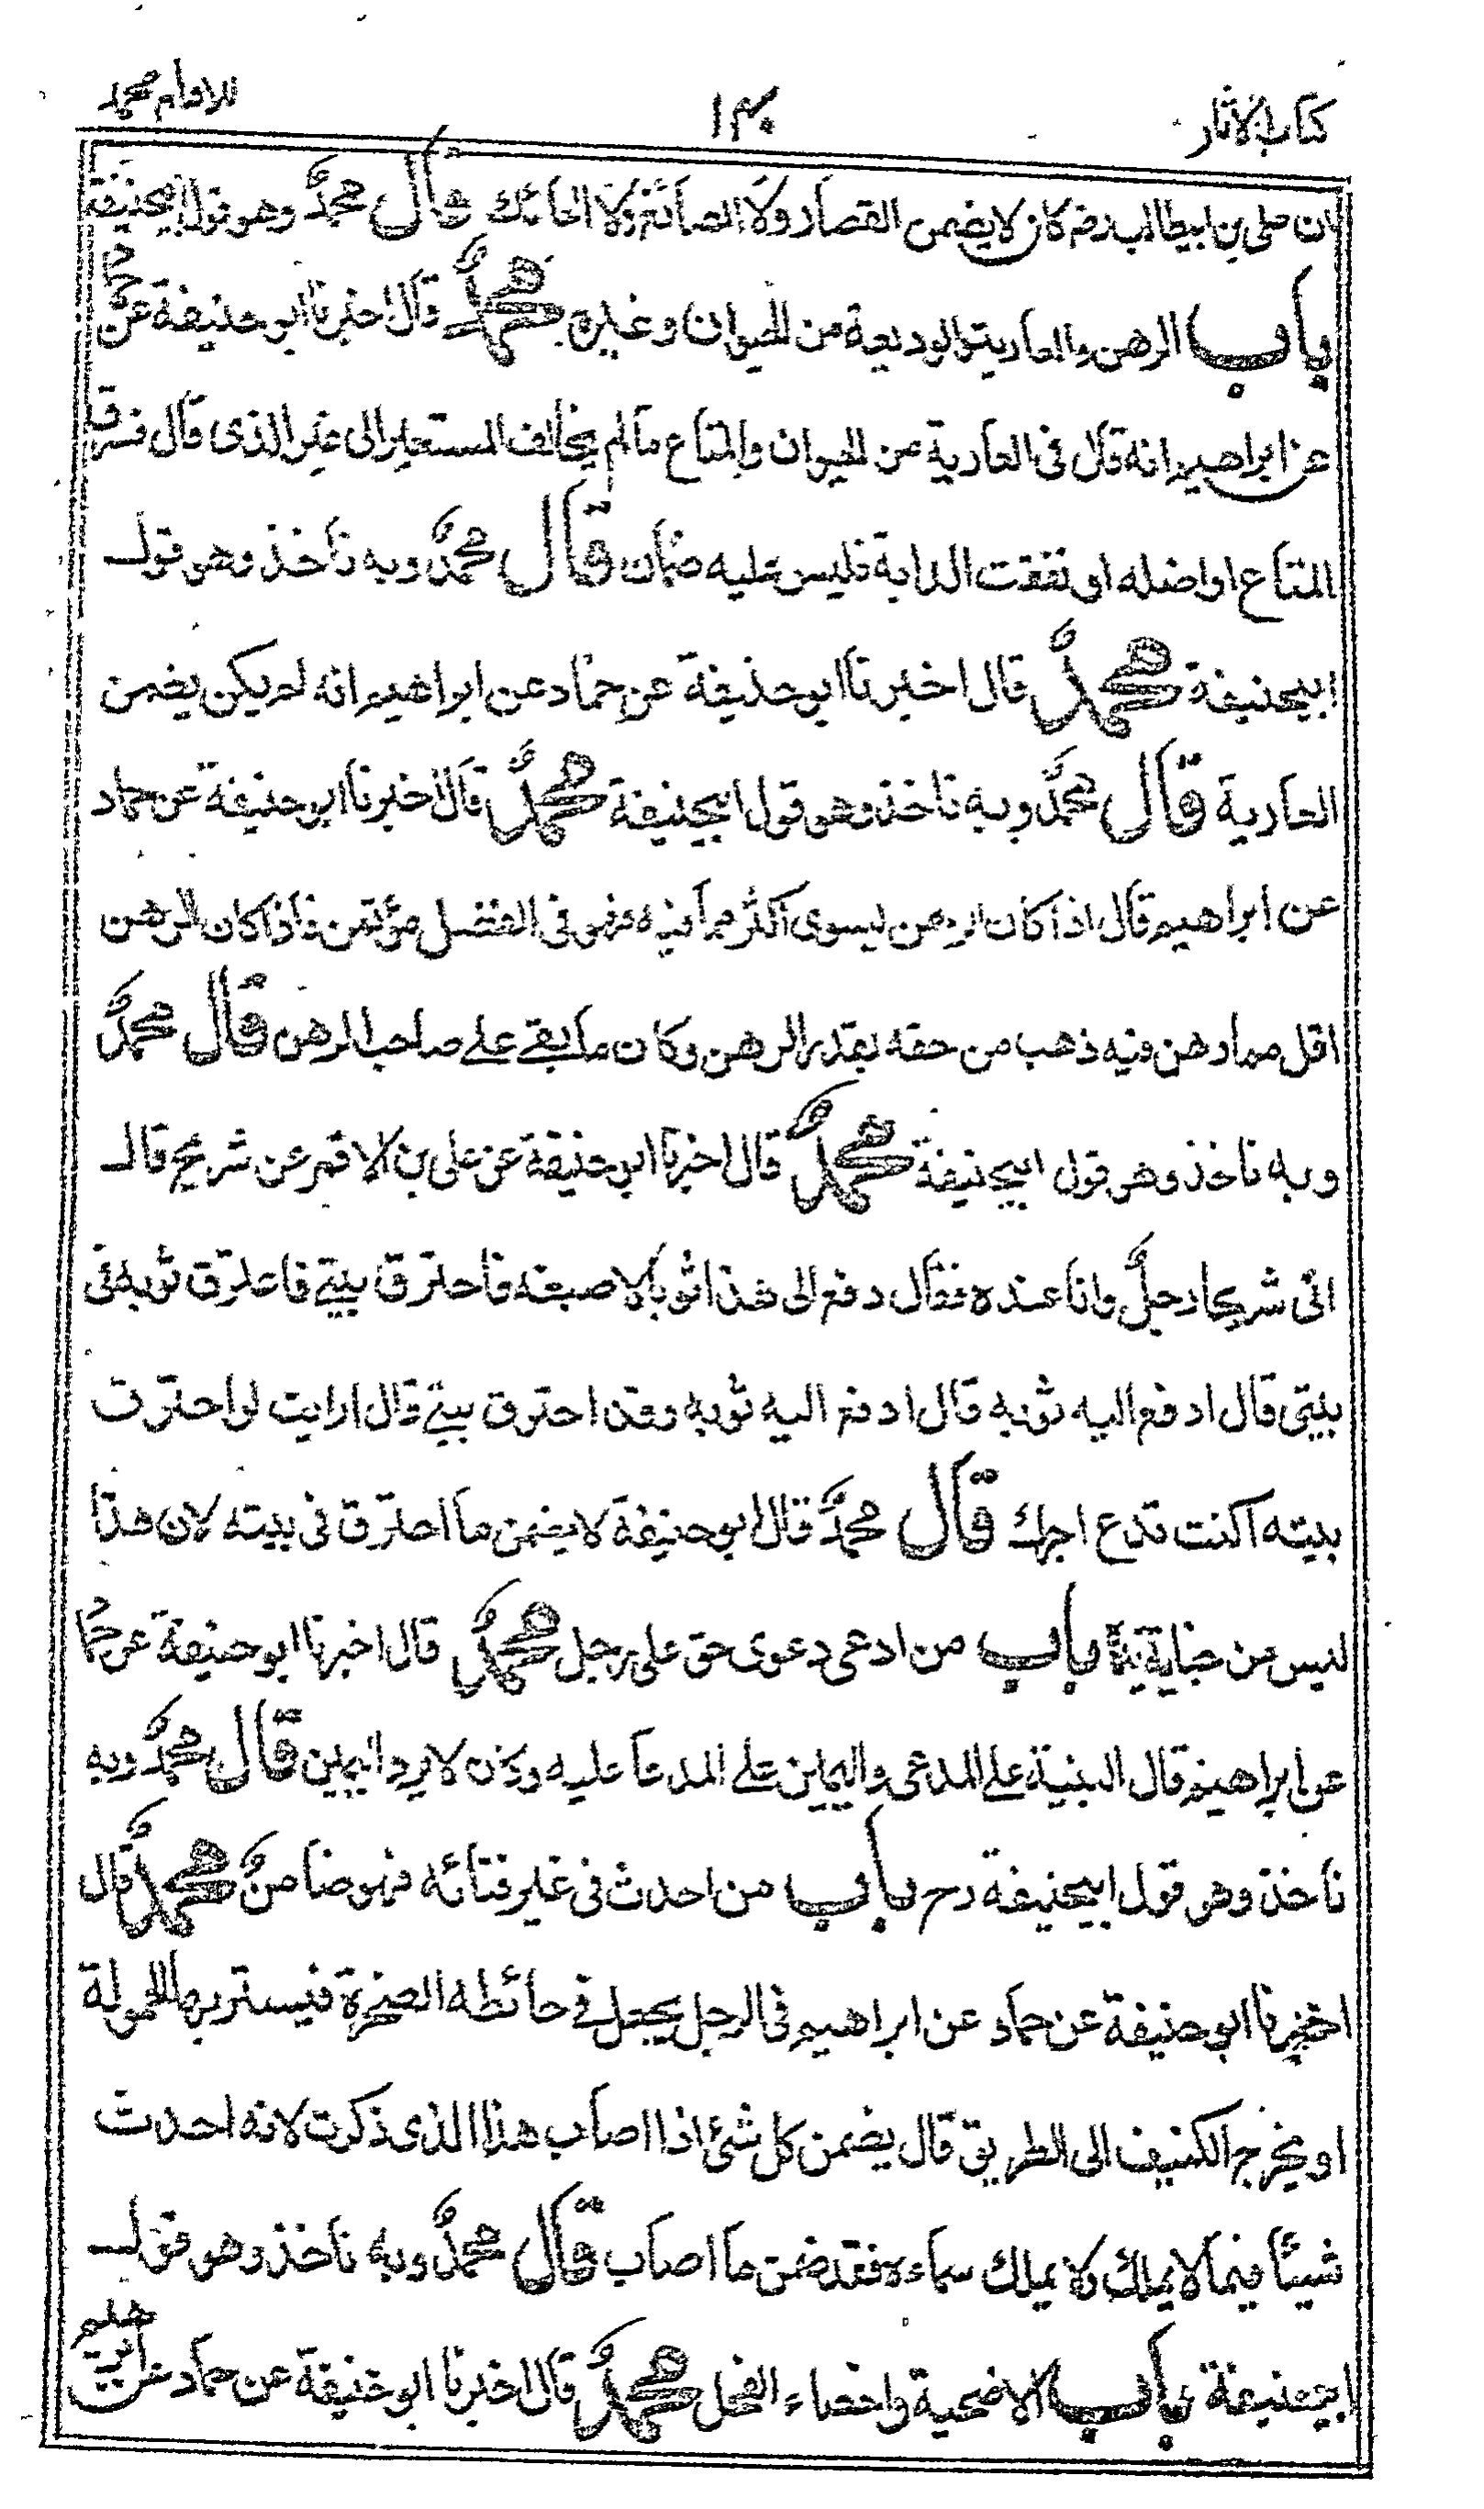 كتاب الآثار ١٣٠ للامام محمد
ان على بن ابيطالب رضـ كان لا يضمن القصار ولا الصائغ ولا الحائك قال محمدؒ وهو قول ابيحنيفة رح
باب الرهن والعارية والوديعة من الحيوان وغيره محمدؒ قال اخبرنا ابو حنيفة عن حماد
عن ابراهيم انه قال فى العارية من الحيوان والمتاع ما لم يخالف المستعير الى غير الذى قال فسرق
المتاع او اضله او نفقت الدابة فليس عليه ضمان قال محمدؒ وبه ناخذ وهو قول
ابيحنيفة محمدؒ قال اخبرنا ابو حنيفة عن حماد عن ابراهيم انه لم يكن يضمن
العارية قال محمدؒ وبه ناخذ وهو قول ابيحنيفة محمدؒ قال اخبرنا ابو حنيفة عن حماد
عن ابراهيم قال اذا كان الرهن يسوى اكثر مما فيه فهو فى الفضل مؤتمن فاذا كان الرهن
اقل مما رهن فيه ذهب من حقه بقدر الرهن وكان ما بقے علے صاحب الرهن قال محمدؒ
وبه ناخذ وهو قول ابيحنيفة محمدؒ قال اخبرنا ابو حنيفة عن على بن الاقمر عن شريح قال
اتى شريحا رجلٌ وانا عنده فقال دفع الى هذا ثوبا لاصبغه فاحترق بيتے فاحترق ثوبه فى
بيتى قال ادفع اليه ثوبه قال ادفع اليه ثوبه وقد احترق بيتے قال ارايت لو احترق
بيته اكنت تدع اجرك قال محمدؒ قال ابو حنيفة لا يضمن ما احترق فى بيته لان هذا
ليس من جناية يده باب من ادعى دعوى حق على رجل محمدؒ قال اخبرنا ابو حنيفة عن حماد
عن ابراهيم قال البينة على المدعى واليمين على المدعا عليه وكان لا يرد اليمين قال محمدؒ وبه
ناخذ وهو قول ابيحنيفة رح باب من احدث فى غير فنائه فهو ضامن محمدؒ قال
اخبرنا ابو حنيفة عن حماد عن ابراهيم فى الرجل يجعل فے حائطه الصخرة فيستر بها الحمولة
او يخرج الكنيف الى الطريق قال يضمن كل شئ اذا اصاب هذا الذى ذكرت لانه احدث
شيئا فيما لا يملك ولا يملك سماءه فقد ضمن ما اصاب قال محمدؒ وبه ناخذ وهو قول
ابيحنيفة باب الاضحية واخصاء الفحل محمدؒ قال اخبرنا ابو حنيفة عن حماد عن ابراهيم